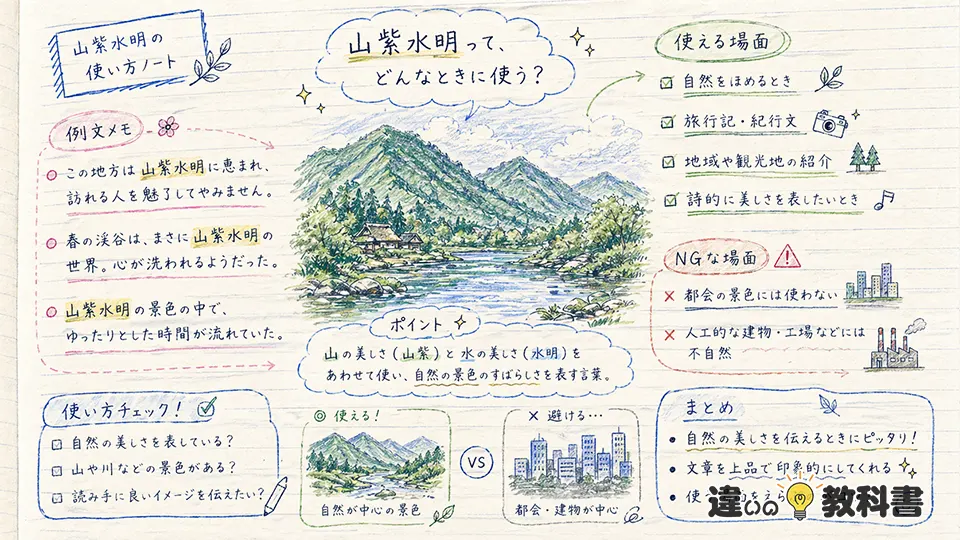 山紫水明の
使い方ノート
山紫水明って、
どんなときに使う?
例文メモ
この地方は山紫水明に恵まれ、
訪れる人を魅了してやみません。
春の渓谷は、まさに山紫水明の
世界。心が洗われるようだった。
山紫水明の景色の中で、
ゆったりとした時間が流れていた。
使える場面
自然をほめるとき
旅行記・紀行文
地域や観光地の紹介
詩的に美しさを表したいとき
NGな場面
× 都会の景色には使わない
× 人工的な建物・工場などには
不自然
ポイント
山の美しさ(山紫)と水の美しさ(水明)を
あわせて使い、自然の景色のすばらしさを表す言葉。
使い方チェック!
自然の美しさを表している?
山や川などの景色がある?
読み手に良いイメージを伝えたい?
◎ 使える!
自然が中心の景色
VS
× 避ける…
都会・建物が中心
まとめ
• 自然の美しさを伝えるときにピッタリ!
• 文章を上品で印象的にしてくれる
• 使
違いの教科書